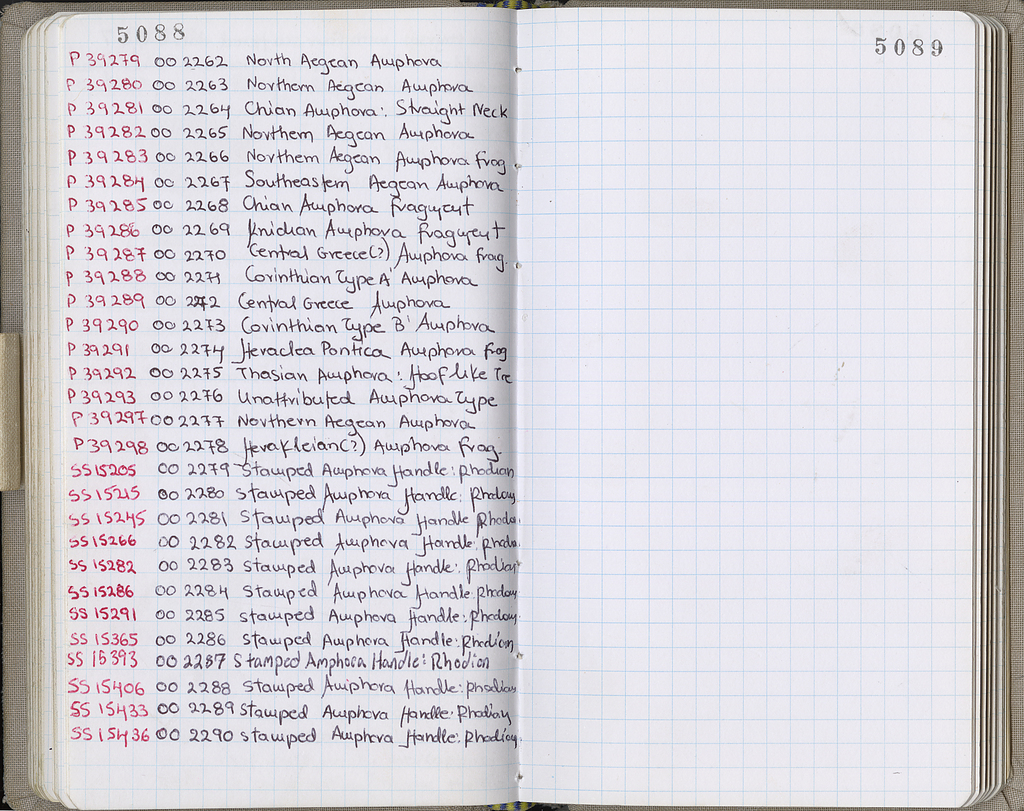 5088
P 39279 00 2262 North Aegean Amphora
P 39280 00 2263 Northern Aegean Amphora
P 39281 00 2264 Chian Amphora: Straight Neck
P 39282 00 2265 Northern Aegean Amphora
P 39283 00 2266 Northern Aegean Amphora frag
P 39284 00 2267 Southeastern Aegean Amphora
P 39285 00 2268 Chian Amphora fragment
P 39286 00 2269 Knidian Amphora fragment
P 39287 00 2270 Central Greece(?) Amphora frag.
P 39288 00 2271 Corinthian Type A' Amphora
P 39289 00 2272 Central Greece Amphora
P 39290 00 2273 Corinthian Type B' Amphora
P 39291 00 2274 Heraclea Pontica Amphora frag
P 39292 00 2275 Thasian Amphora: Hoof like Toe
P 39293 00 2276 Unattributed Amphora Type
P 39297 00 2277 Northern Aegean Amphora
P 39298 00 2278 Herakleian(?) Amphora frag.
SS 15205 00 2279 Stamped Amphora Handle: Rhodian
SS 15215 00 2280 Stamped Amphora Handle: Rhodian
SS 15245 00 2281 Stamped Amphora Handle Rhodia
SS 15266 00 2282 Stamped Amphora Handle: Rhodia
SS 15282 00 2283 Stamped Amphora Handle: Rhodian
SS 15286 00 2284 Stamped Amphora Handle: Rhodian
SS 15291 00 2285 stamped Amphora Handle: Rhodian
SS 15365 00 2286 Stamped Amphora Handle: Rhodian
SS 15393 00 2287 Stamped Amphora Handle: Rhodian
SS 15406 00 2288 Stamped Amphora Handle: Rhodian
SS 15433 00 2289 Stamped Amphora Handle: Rhodian
SS 15436 00 2290 stamped Amphora Handle: Rhodian
5089